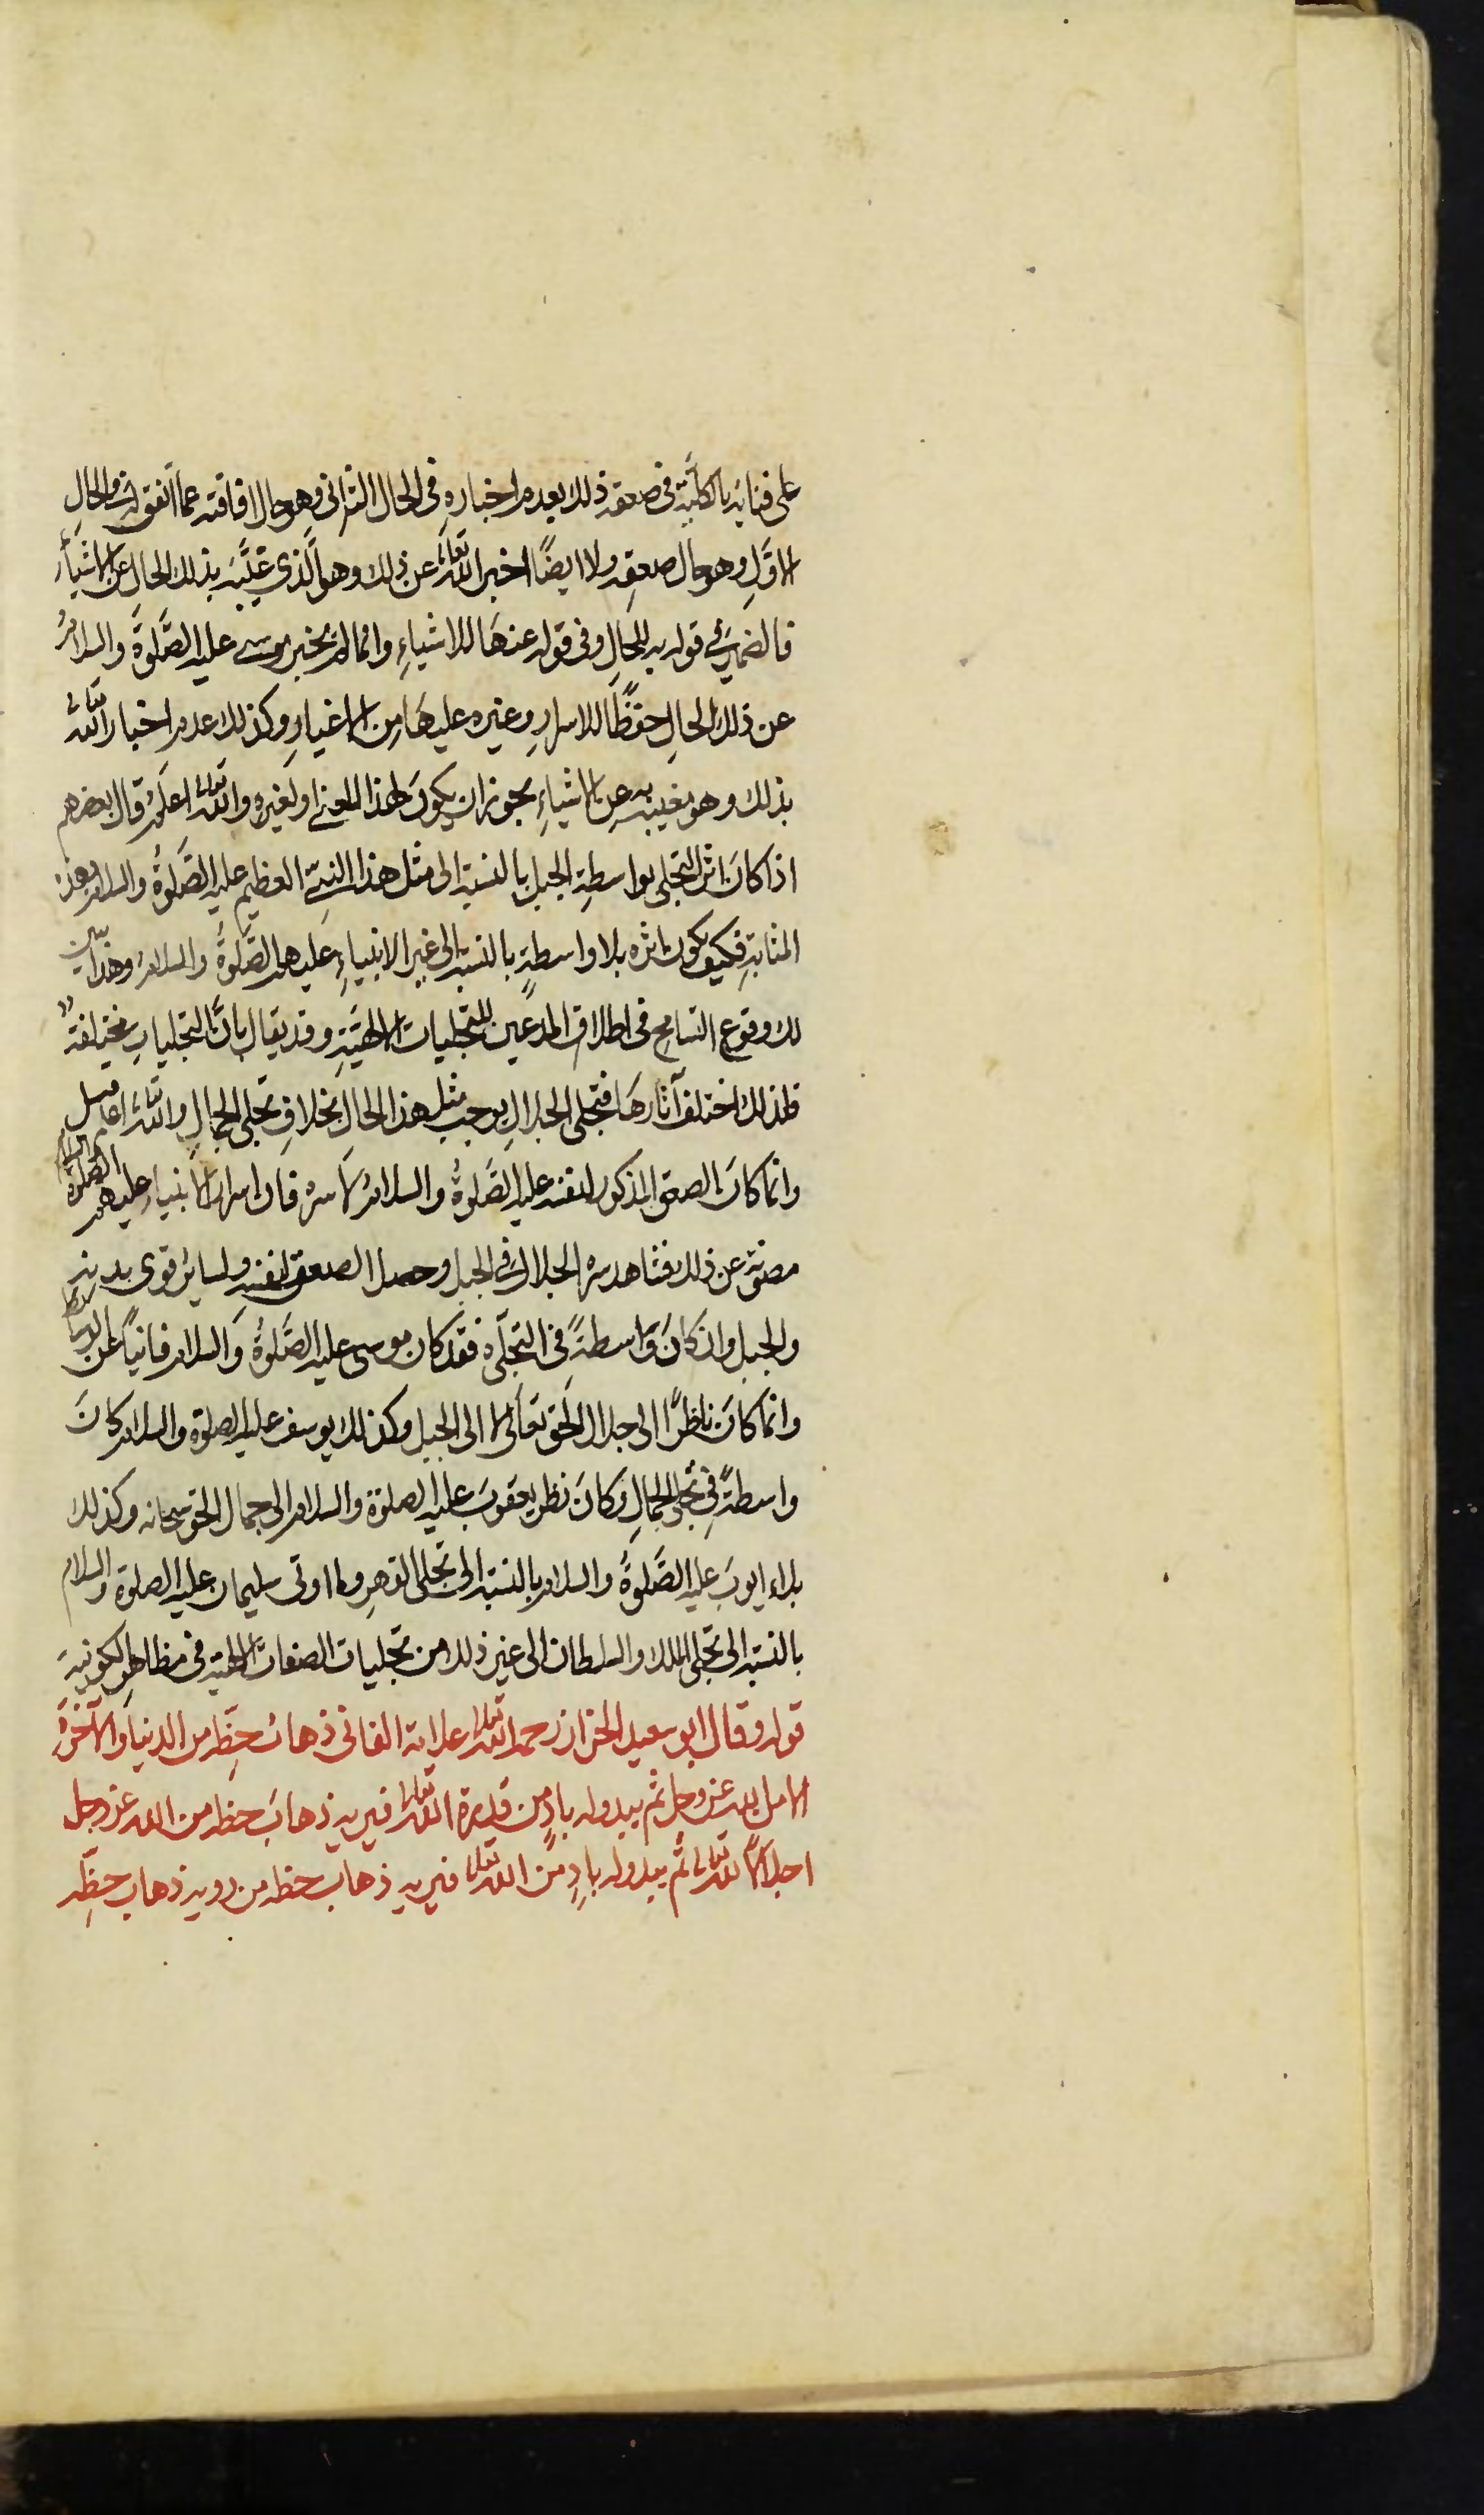 على فنائه بالكلية في صعقه ذلك بعدم اخباره في الحال الثاني وهو حال افاقته عما اتفق له في الحال
الاوَّلِ وهو حال صعقه ولا ايضًا اخبر الله تعالى عن ذلك وهو الَّذي غيَّبَه بذلك الحال عن الاشياء
فالضمير في قوله به للحالِ وفي قوله عنها للاشياءِ وانما لم يخبر موسى عليه الصَّلوةُ والسلامُ
عن ذلك الحالِ حفظًا للاسرارِ وغيره عليها من الاغيارِ وكذلك عدم اخبار الله تعالى
بذلك وهو مغيبه به عن الاشياءِ يجوز ان يكونَ لهذا المعنى او لغيره والله تعالى اعلم قال بعضهم
اذا كانَ اثر التجلى بواسطةِ الجبل بالنسبة الى مثل هذا النبيّ العظيم عليه الصَّلوةُ والسلام بهذه
المثابةِ فكيف يكون اثره بلا واسطةٍ بالنسبة الى غير الانبياءِ عليهم الصَّلوةُ والسلامُ وهذا يبيّن
لك وقوع التسامح في اطلاق المدَّعين للتجليات الالهيَّةِ وقد يقال بانَّ التجلياتِ مختلفةٌ
فلذلك اختلف آثارها فتجلى الجلالِ يوجب مثل هذا الحالِ بخلافِ تجلى الجمالِ والله تعالى اعلم قيل
وانما كانَ الصعق المذكور لنفسه عليه الصَّلوةُ والسلامُ لا سره فان اسرار الانبياءِ عليهم الصلوة والسلام
مصونة عن ذلك فشاهد سره الجلال في الجبل وحصل الصعق لنفسه ولسائر قوى بدنه
والجبل وان كانَ وَاسطةً في التجلّي فقد كان موسى عليه الصَّلوةُ وَالسلام فانيًا عن الوسائط
وانما كانَ ناظرًا الى جلال الحق تعَالى لا الى الجبل وكذلك يوسف عليه الصلوة والسلام كانَ
واسطةً في تجلى الجمالِ وَكانَ نظر يعقوبَ عليه الصلوة والسلام الى جمال الحق سبحانه وكذلك
بلاء ايوبَ عليه الصَّلوةُ والسلام بالنسبة الى تجلى القهرِ وما اوتى سليمان عليه الصلوة والسلام
بالنسبة الى تجلى الملك والسلطان الى غير ذلك من تجليات الصفات الالهية في مظاهر الكونية
قوله وقال ابو سعيد الخراز رحمه الله تعالى علامة الفانى ذهابُ حظِّه من الدنيا والآخرةِ
الا من الله عز وجل ثم يبدو له بادٍ من قدرة الله تعالى فيريه ذهابَ حظه من الله عز وجل
اجلالاً لله تعالى ثم يبدو له بادٍ من الله تعالى فيريه ذهاب حظه من روية ذهاب حظِّه